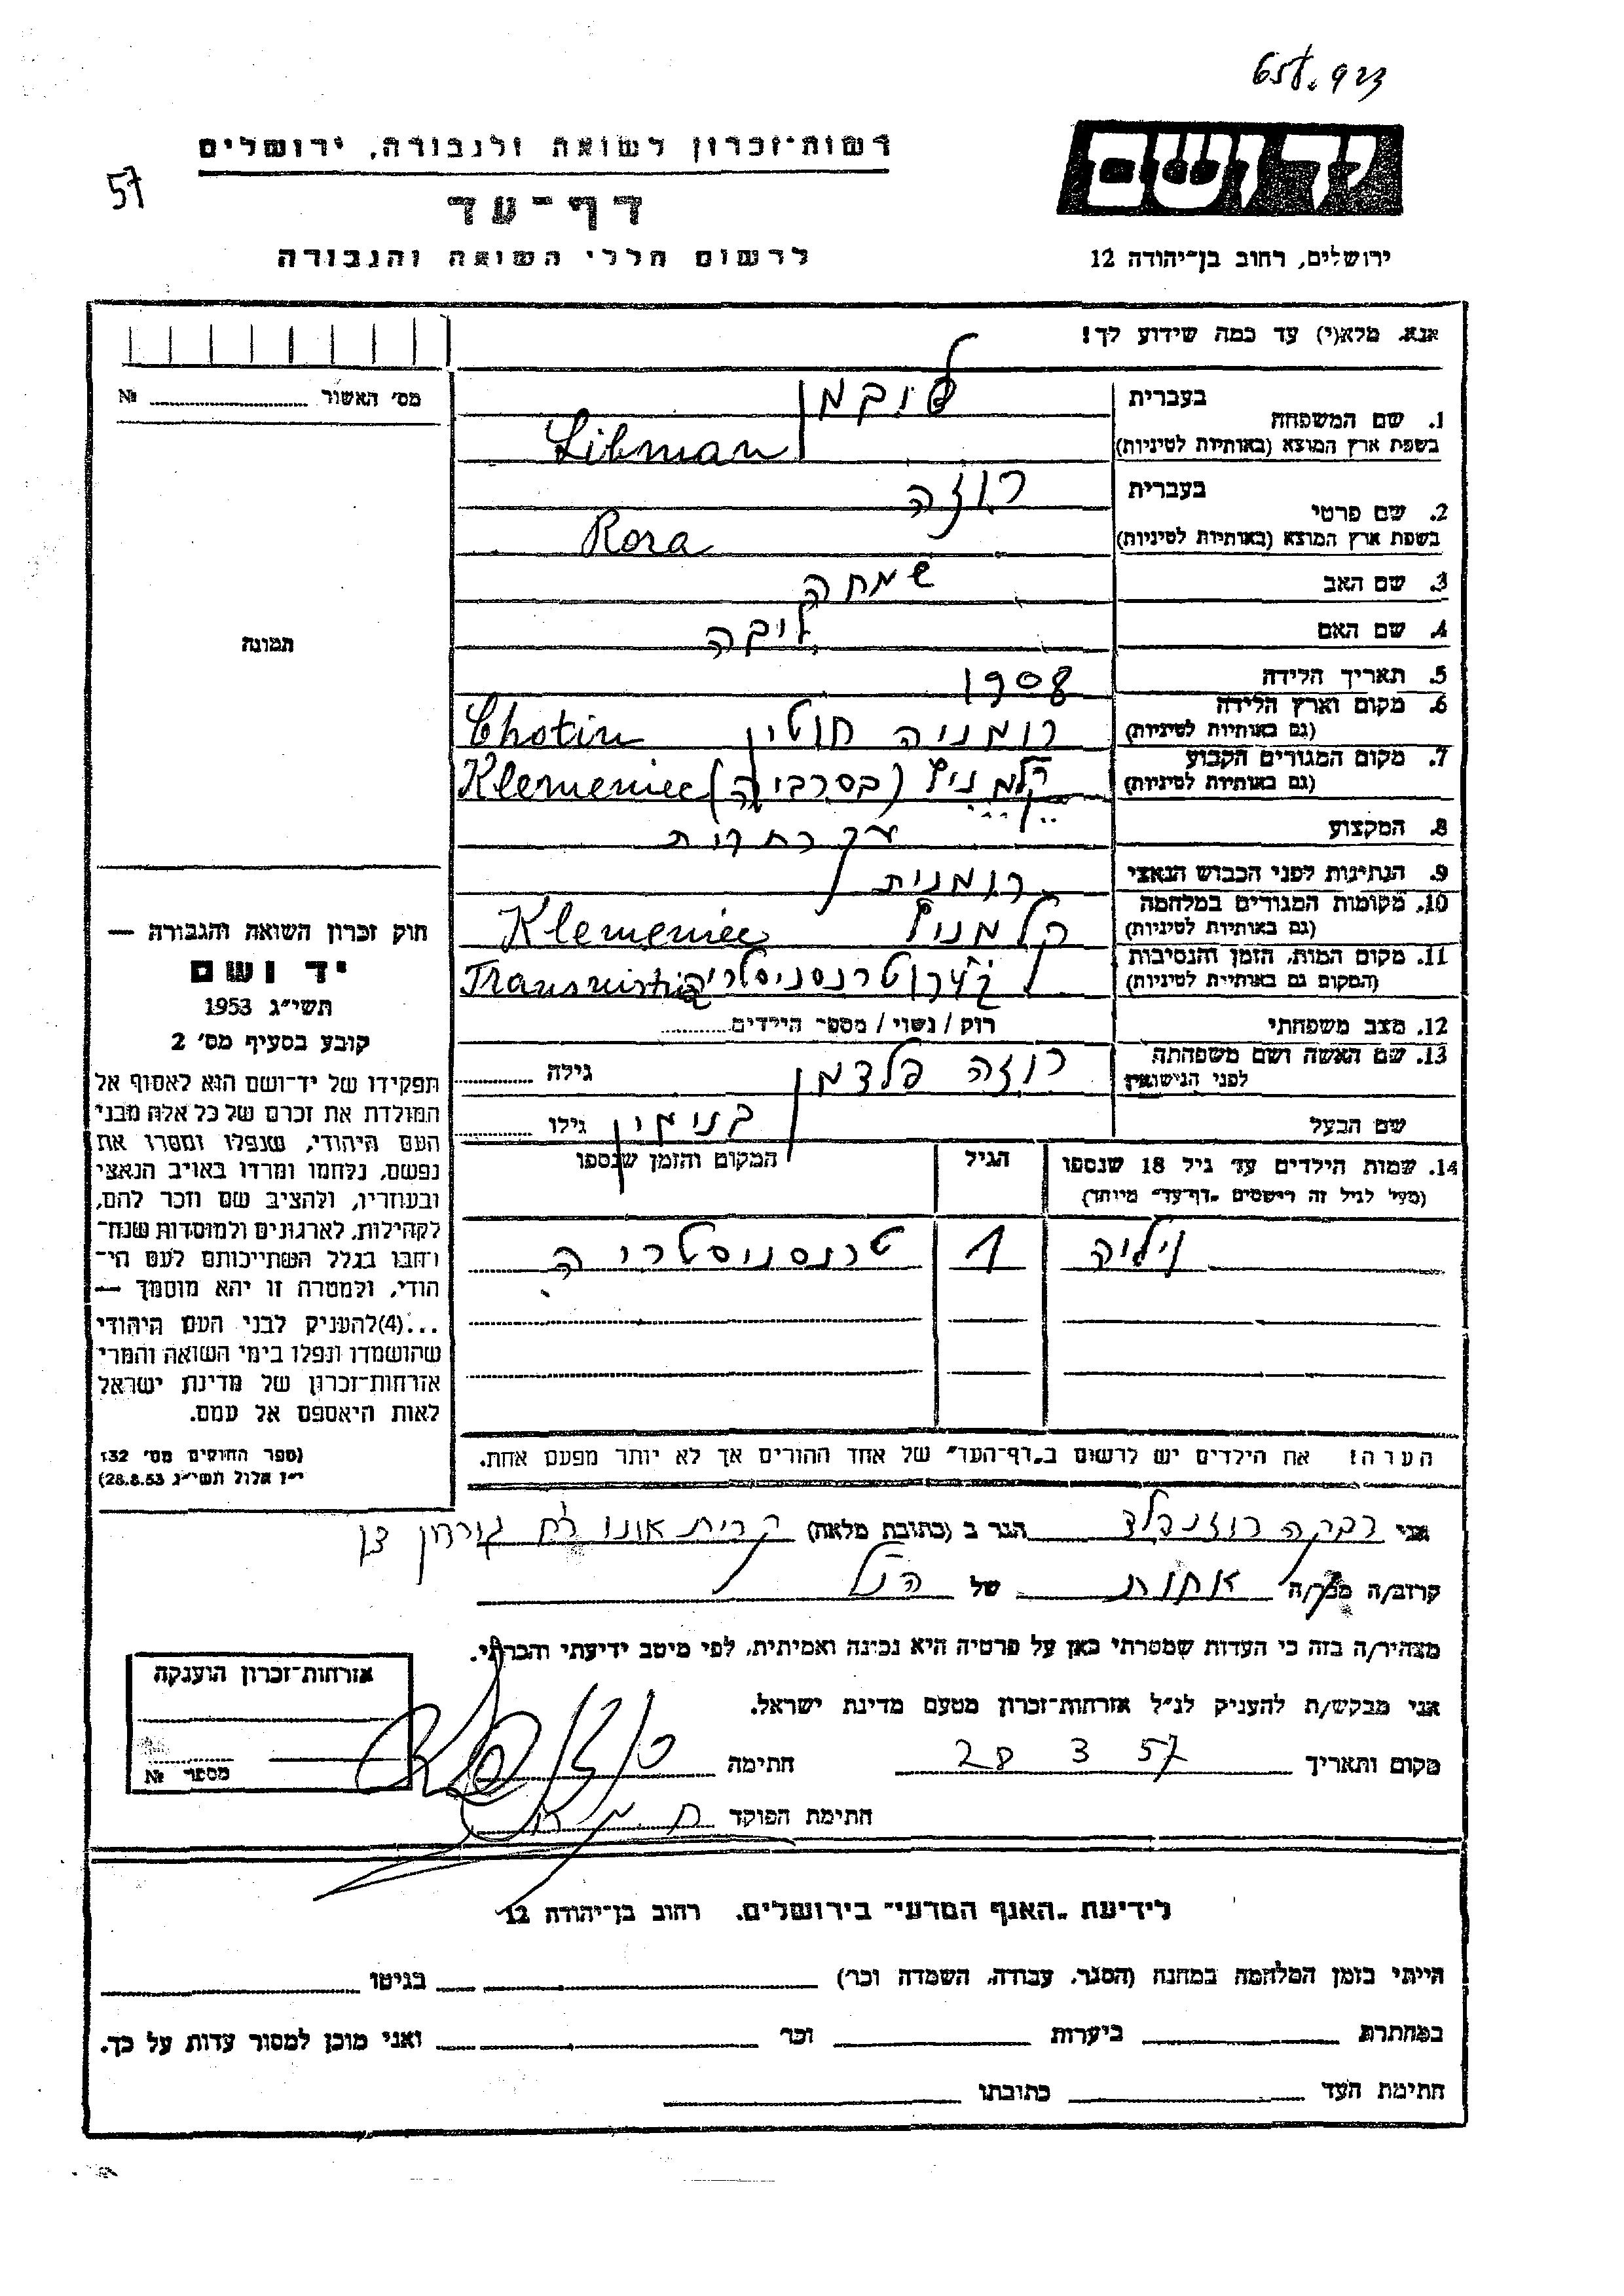 658.923
57
יד ושם
רשות-זכרון לשואה ולגבורה, ירושלים
דף-עד
לרשום חללי השואה והגבורה
ירושלים, רחוב בן-יהודה 12
אנא, מלא(י) עד כמה שידוע לך!
מס' האשור № 
תמונה
1. שם המשפחה
בעברית ליבמן
בשפת ארץ המוצא (באותיות לטיניות) Libman
2. שם פרטי
בעברית רוזה
בשפת ארץ המוצא (באותיות לטיניות) Roza
3. שם האב שמחה
4. שם האם ליבה
5. תאריך הלידה 1908
6. מקום וארץ הלידה (גם באותיות לטיניות) רומניה חוטין Chotin
7. מקום המגורים הקבוע (גם באותיות לטיניות) קלמניץ (בסרביה) Klemeniec
8. המקצוע עקרת בית
9. הנתינות לפני הכבוש הנאצי רומנית
10. מקומות המגורים במלחמה (גם באותיות לטיניות) קלמניץ Klemeniec
11. מקום המות, הזמן והנסיבות (המקום גם באותיות לטיניות) טרנסניסטריה Transnistria
12. מצב משפחתי רוק / נשוי / מספר הילדים
13. שם האשה ושם משפחתה לפני הנישואין רוזה פלדמן גילה
שם הבעל בנימין גילו
14. שמות הילדים עד גיל 18 שנספו הגיל המקום והזמן שנספו
(מעל לגיל זה רושמים "דף-עד" מיוחד)
1 טרנסניסטריה
הערה: את הילדים יש לרשום ב"דף-העד" של אחד ההורים אך לא יותר מפעם אחת.
חוק זכרון השואה והגבורה —
יד ושם
תשי"ג 1953
קובע בסעיף מס' 2
תפקידו של יד-ושם הוא לאסוף אל
המולדת את זכרם של כל אלה מבני
העם היהודי, שנפלו ומסרו את
נפשם, נלחמו ומרדו באויב הנאצי
ובעוזריו, ולהציב שם וזכר להם,
לקהילות, לארגונים ולמוסדות שנח-
רבו בגלל השתייכותם לעם הי-
הודי, ולמטרה זו יהא מוסמך —
...(4)להעניק לבני העם היהודי
שהושמדו ונפלו בימי השואה והמרי
אזרחות-זכרון של מדינת ישראל
לאות היאספם אל עמם.
(ספר החוקים מס' 132
י"ז אלול תשי"ג 28.8.53)
אני רבקה רוזנבלד הגר ב (כתובת מלאה) קרית אונו
קרוב/ה מכר/ה אחות של הנ"ל
מצהיר/ה בזה כי העדות שמסרתי כאן על פרטיה היא נכונה ואמיתית, לפי מיטב ידיעתי והכרתי.
אני מבקש/ת להעניק לנ"ל אזרחות-זכרון מטעם מדינת ישראל.
מקום ותאריך 28 3 57 חתימה
חתימת הפוקד
אזרחות-זכרון הוענקה
מספר №
לידיעת "האגף המדעי" בירושלים, רחוב בן-יהודה 12
הייתי בזמן המלחמה במחנה (הסגר, עבודה, השמדה וכו') בגיטו
במחתרת ביערות וכו' ואני מוכן למסור עדות על כך.
חתימת העד כתובתו